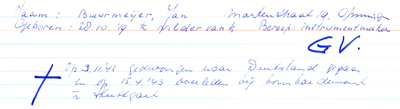 Naam: Buurmeijer, Jan Martenstraat 19. Groningen
Geboren: 28.10.'19 te Wildervank Beroep: instrumentmaker
G.V.
Op 3.11.42 gedwongen naar Duitsland gegaan
en op 15.4.'43 overleden bij bombardement
te Stuttgart